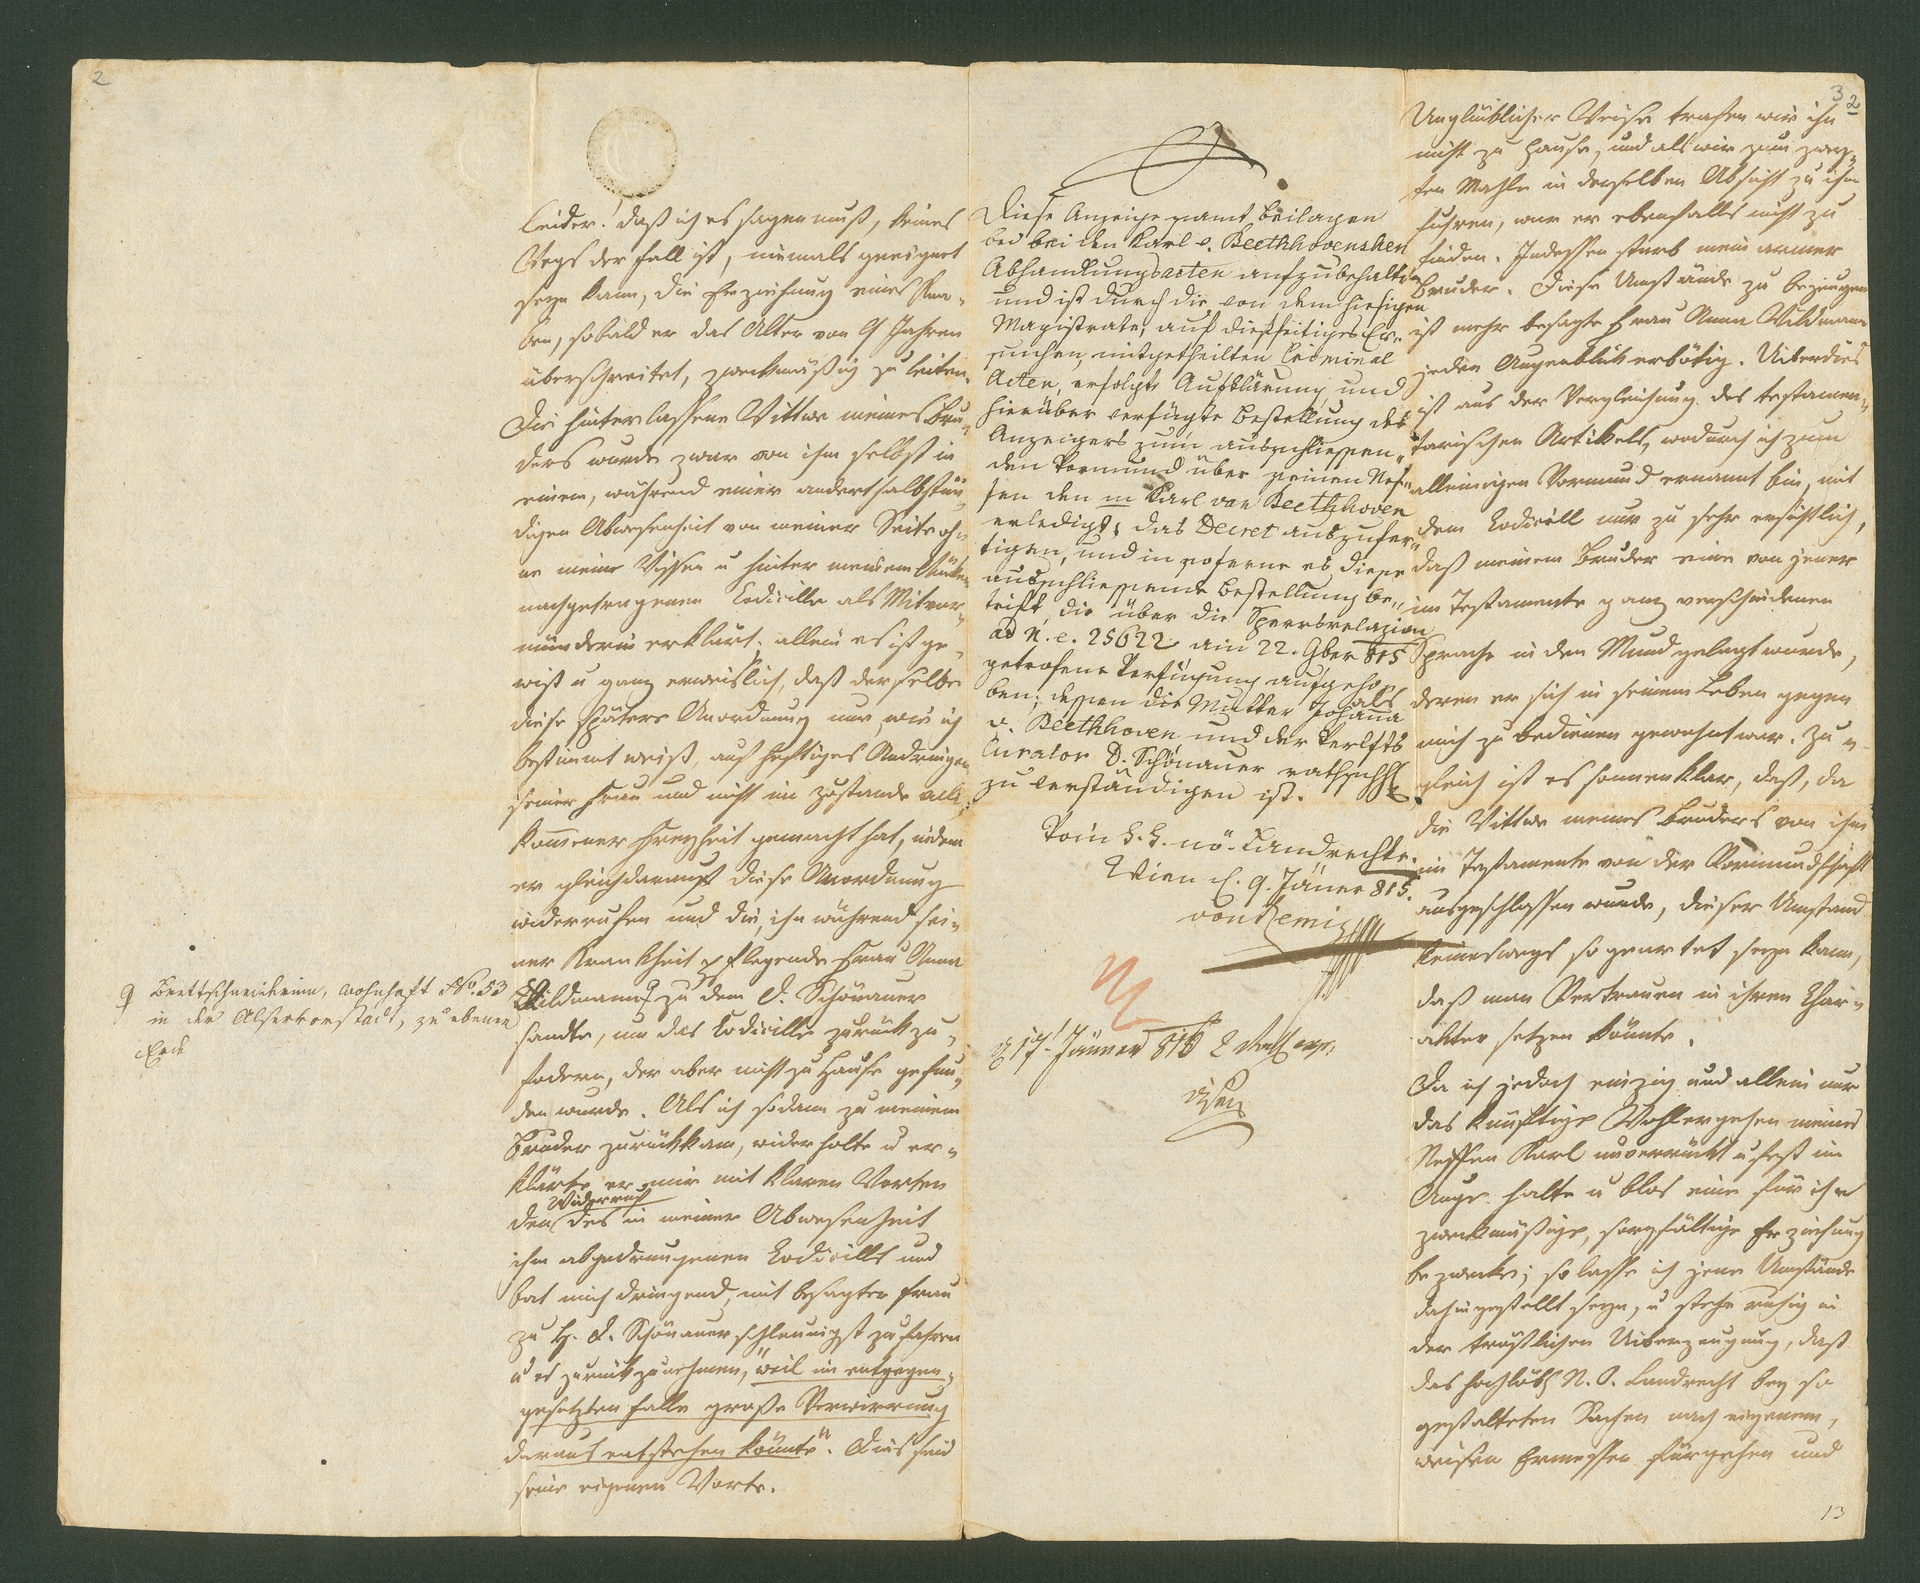 2
leider! daß ich es sagen muß, keines
Wegs der Fall ist, niemals geeignet
seyn kann, die Erziehung eines Kna-
ben, sobald er das Alter von 9 Jahren
überschreitet, zweckmäßig zu leiten.
Die hinterlassene Wittwe meines Bru-
ders wurde zwar von ihm selbst in
einem, während einer anderthalbstün-
digen Abwesenheit von meiner Seite oh-
ne mein Wissen u hinter meinem Rücken
nachgetragenen Codicille als Mitvor-
münderin erklärt; allein es ist ge-
wiß u ganz erweislich, daß derselbe
diese spätere Anordnung nur, wie ich
bestimmt weiß, auf heftiges Andringen
seiner Frau und nicht im Zustande voll-
kommener Freyheit gemacht hat, indem
er gleich darauf diese Anordnung
widerrufen und die, ihn während sei-
ner Krankheit pflegende Frau Anna
Wildmann zu dem D. Schönauer
Brettschneiderin, wohnhaft No. 53
in der Alservorstadt, zu ebener
Erde
sandte, um das Codicille zurück zu-
fodern, der aber nicht zu Hause gefun-
den wurde. Als ich sodann zu meinem
Bruder zurückkam, widerholte u er-
klärte er mir mit klaren Worten
Widerruf
den des in meiner Abwesenheit
ihm abgedrungenen Codicills und
bat mich dringend, mit besagter Frau
zu H. D. Schönauer schleunigst zu fahren
u es zurückzunehmen, "weil im entgegen-
gesetzten Falle große Verwirrung
daraus entstehen könnte". Dies sind
seine eigenen Worte.
Diese Anzeige samt Beilagen
bei den Karl v. Beethhovenshen
Abhandlungsacten aufzubehalten
und ist durch die von dem hiesigen
Magistrate, auf diesseitiges Er-
suchen, mitgetheilten Criminal
Acten, erfolgte Aufklärung und
hierüber verfügte Bestellung des
Anzeigers zum ausschliessen-
den Vormund über seinen Nef-
fen den m Karl van Beethhoven
erledigt; das Decret auszufer-
tigen, und in soferne es diese
ausschliessende Bestellung be-
trift, die über die Sperrsrelazion
ad N. e. 25622 am 22. 9ber 815
getrofene Verfügung aufgeho-
ben; dessen die Mutter Johana als
v. Beethhoven und der Verlfts
Curator D. Schönauer rathschl
zu verständigen ist.
Vom k. k. nö. Landrechte.
Wien d. 9. Jäner 815.
von Remiz
17. Jänner 816
3 2
Unglücklicher Weise trafen wir ihn
nicht zu Hause, und als wir zum zwey-
ten Mahle in derselben Absicht zu ihm
fuhren, war er ebenfalls nicht zu
finden. Indessen starb mein armer
Bruder. Diese Umstände zu bezeugen
ist mehr besagte Frau Anna Wildmann
jeden Augenblick erbötig. Uiberdies
ist aus der Vergleichung des testamen-
tarischen Artikels, wodurch ich zum
alleinigen Vormund ernannt bin, mit
dem Codicill nur zu sehr ersichtlich,
daß meinem Bruder eine von jener
im Testamente ganz verschiedenen
Sprache in den Mund gelegt wurde,
deren er sich in seinem Leben gegen
mich zu bedienen gewohnt war. Zu-
gleich ist es sonnenklar, daß, da
die Wittwe meines Bruders von ihm
im Testamente von der Vormundschaft
ausgeschlossen wurde, dieser Umstand
keineswegs so geartet seyn kann,
daß man Vertrauen in ihren Char-
akter setzen könnte.
Da ich jedoch einzig und allein nur
das künftige Wohlergehen meines
Neffen Karl unverrückt u fest im
Auge halte u blos eine für ihn
zweckmäßige, sorgfältige Erziehung
bezwecke; so lasse ich jene Umstände
dahingestellt seyn, u stehe ruhig in
der tröstlichen Uiberzeugung, daß
das hochlöbl N. O. Landrecht bey so
gestalteten Sachen nach eigenem,
weisen Ermessen fürgehen und
13